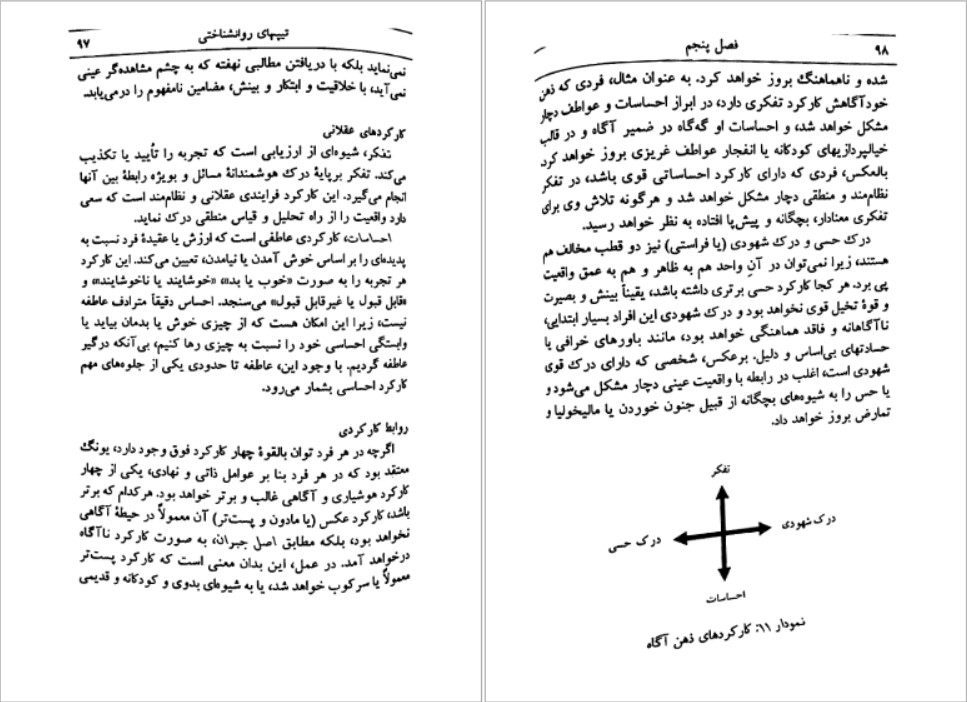 تیپهای روانشناختی
۹۷
نمی‌نماید بلکه با دریافتن مطالبی نهفته که به چشم مشاهده‌گر عینی
نمی‌آید، با خلاقیت و ابتکار و بینش، مضامین نامفهوم را درمی‌یابد.
کارکردهای عقلانی
تفکر، شیوه‌ای از ارزیابی است که تجربه را تأیید یا تکذیب
می‌کند. تفکر برپایهٔ درک هوشمندانهٔ مسائل و بویژه رابطهٔ بین آنها
انجام می‌گیرد. این کارکرد فرایندی عقلانی و نظام‌مند است که سعی
دارد واقعیت را از راه تحلیل و قیاس منطقی درک نماید.
احساسات، کارکردی عاطفی است که ارزش یا عقیدهٔ فرد نسبت به
پدیده‌ای را بر اساس خوش آمدن یا نیامدن، تعیین می‌کند. این کارکرد
هر تجربه را به صورت «خوب یا بد»، «خوشایند یا ناخوشایند» و
«قابل قبول یا غیرقابل قبول» می‌سنجد. احساس دقیقاً مترادف عاطفه
نیست، زیرا این امکان هست که از چیزی خوش یا بدمان بیاید یا
وابستگی احساسی خود را نسبت به چیزی رها کنیم، بی‌آنکه درگیر
عاطفه گردیم. با وجود این، عاطفه تا حدودی یکی از جلوه‌های مهم
کارکرد احساسی بشمار می‌رود.
روابط کارکردی
اگرچه در هر فرد توان بالقوهٔ چهار کارکرد فوق وجود دارد، یونگ
معتقد بود که در هر فرد بنا بر عوامل ذاتی و نهادی، یکی از چهار
کارکرد هوشیاری و آگاهی غالب و برتر خواهد بود. هرکدام که برتر
باشد، کارکرد عکس (یا مادون و پست‌تر) آن معمولاً در حیطهٔ آگاهی
نخواهد بود، بلکه مطابق اصل جبران، به صورت کارکرد ناآگاه
درخواهد آمد. در عمل، این بدان معنی است که کارکرد پست‌تر
معمولاً یا سرکوب خواهد شد، یا به شیوه‌ای بدوی و کودکانه و قدیمی
۹۸
فصل پنجم
شده و ناهماهنگ بروز خواهد کرد. به عنوان مثال، فردی که ذهن
خودآگاهش کارکرد تفکری دارد، در ابراز احساسات و عواطف دچار
مشکل خواهد شد، و احساسات او گه‌گاه در ضمیر آگاه و در قالب
خیالپردازیهای کودکانه یا انفجار عواطف غریزی بروز خواهد کرد.
بالعکس، فردی که دارای کارکرد احساساتی قوی باشد، در تفکر
نظام‌مند و منطقی دچار مشکل خواهد شد و هرگونه تلاش وی برای
تفکری معنادار، بچگانه و پیش‌پا افتاده به نظر خواهد رسید.
درک حسی و درک شهودی (یا فراستی) نیز دو قطب مخالف هم
هستند، زیرا نمی‌توان در آنِ واحد هم به ظاهر و هم به عمق واقعیت
پی برد. هر کجا کارکرد حسی برتری داشته باشد، یقیناً بینش و بصیرت
و قوهٔ تخیل قوی نخواهد بود و درک شهودی این افراد بسیار ابتدایی،
ناآگاهانه و فاقد هماهنگی خواهد بود، مانند باورهای خرافی یا
حسادتهای بی‌اساس و دلیل. برعکس، شخصی که دارای درک قوی
شهودی است، اغلب در رابطه با واقعیت عینی دچار مشکل می‌شود و
یا حس را به شیوه‌های بچگانه از قبیل جنون خوردن یا مالیخولیا و
تمارض بروز خواهد داد.
تفکر
درک شهودی
درک حسی
احساسات
نمودار ۱۱: کارکردهای ذهن آگاه